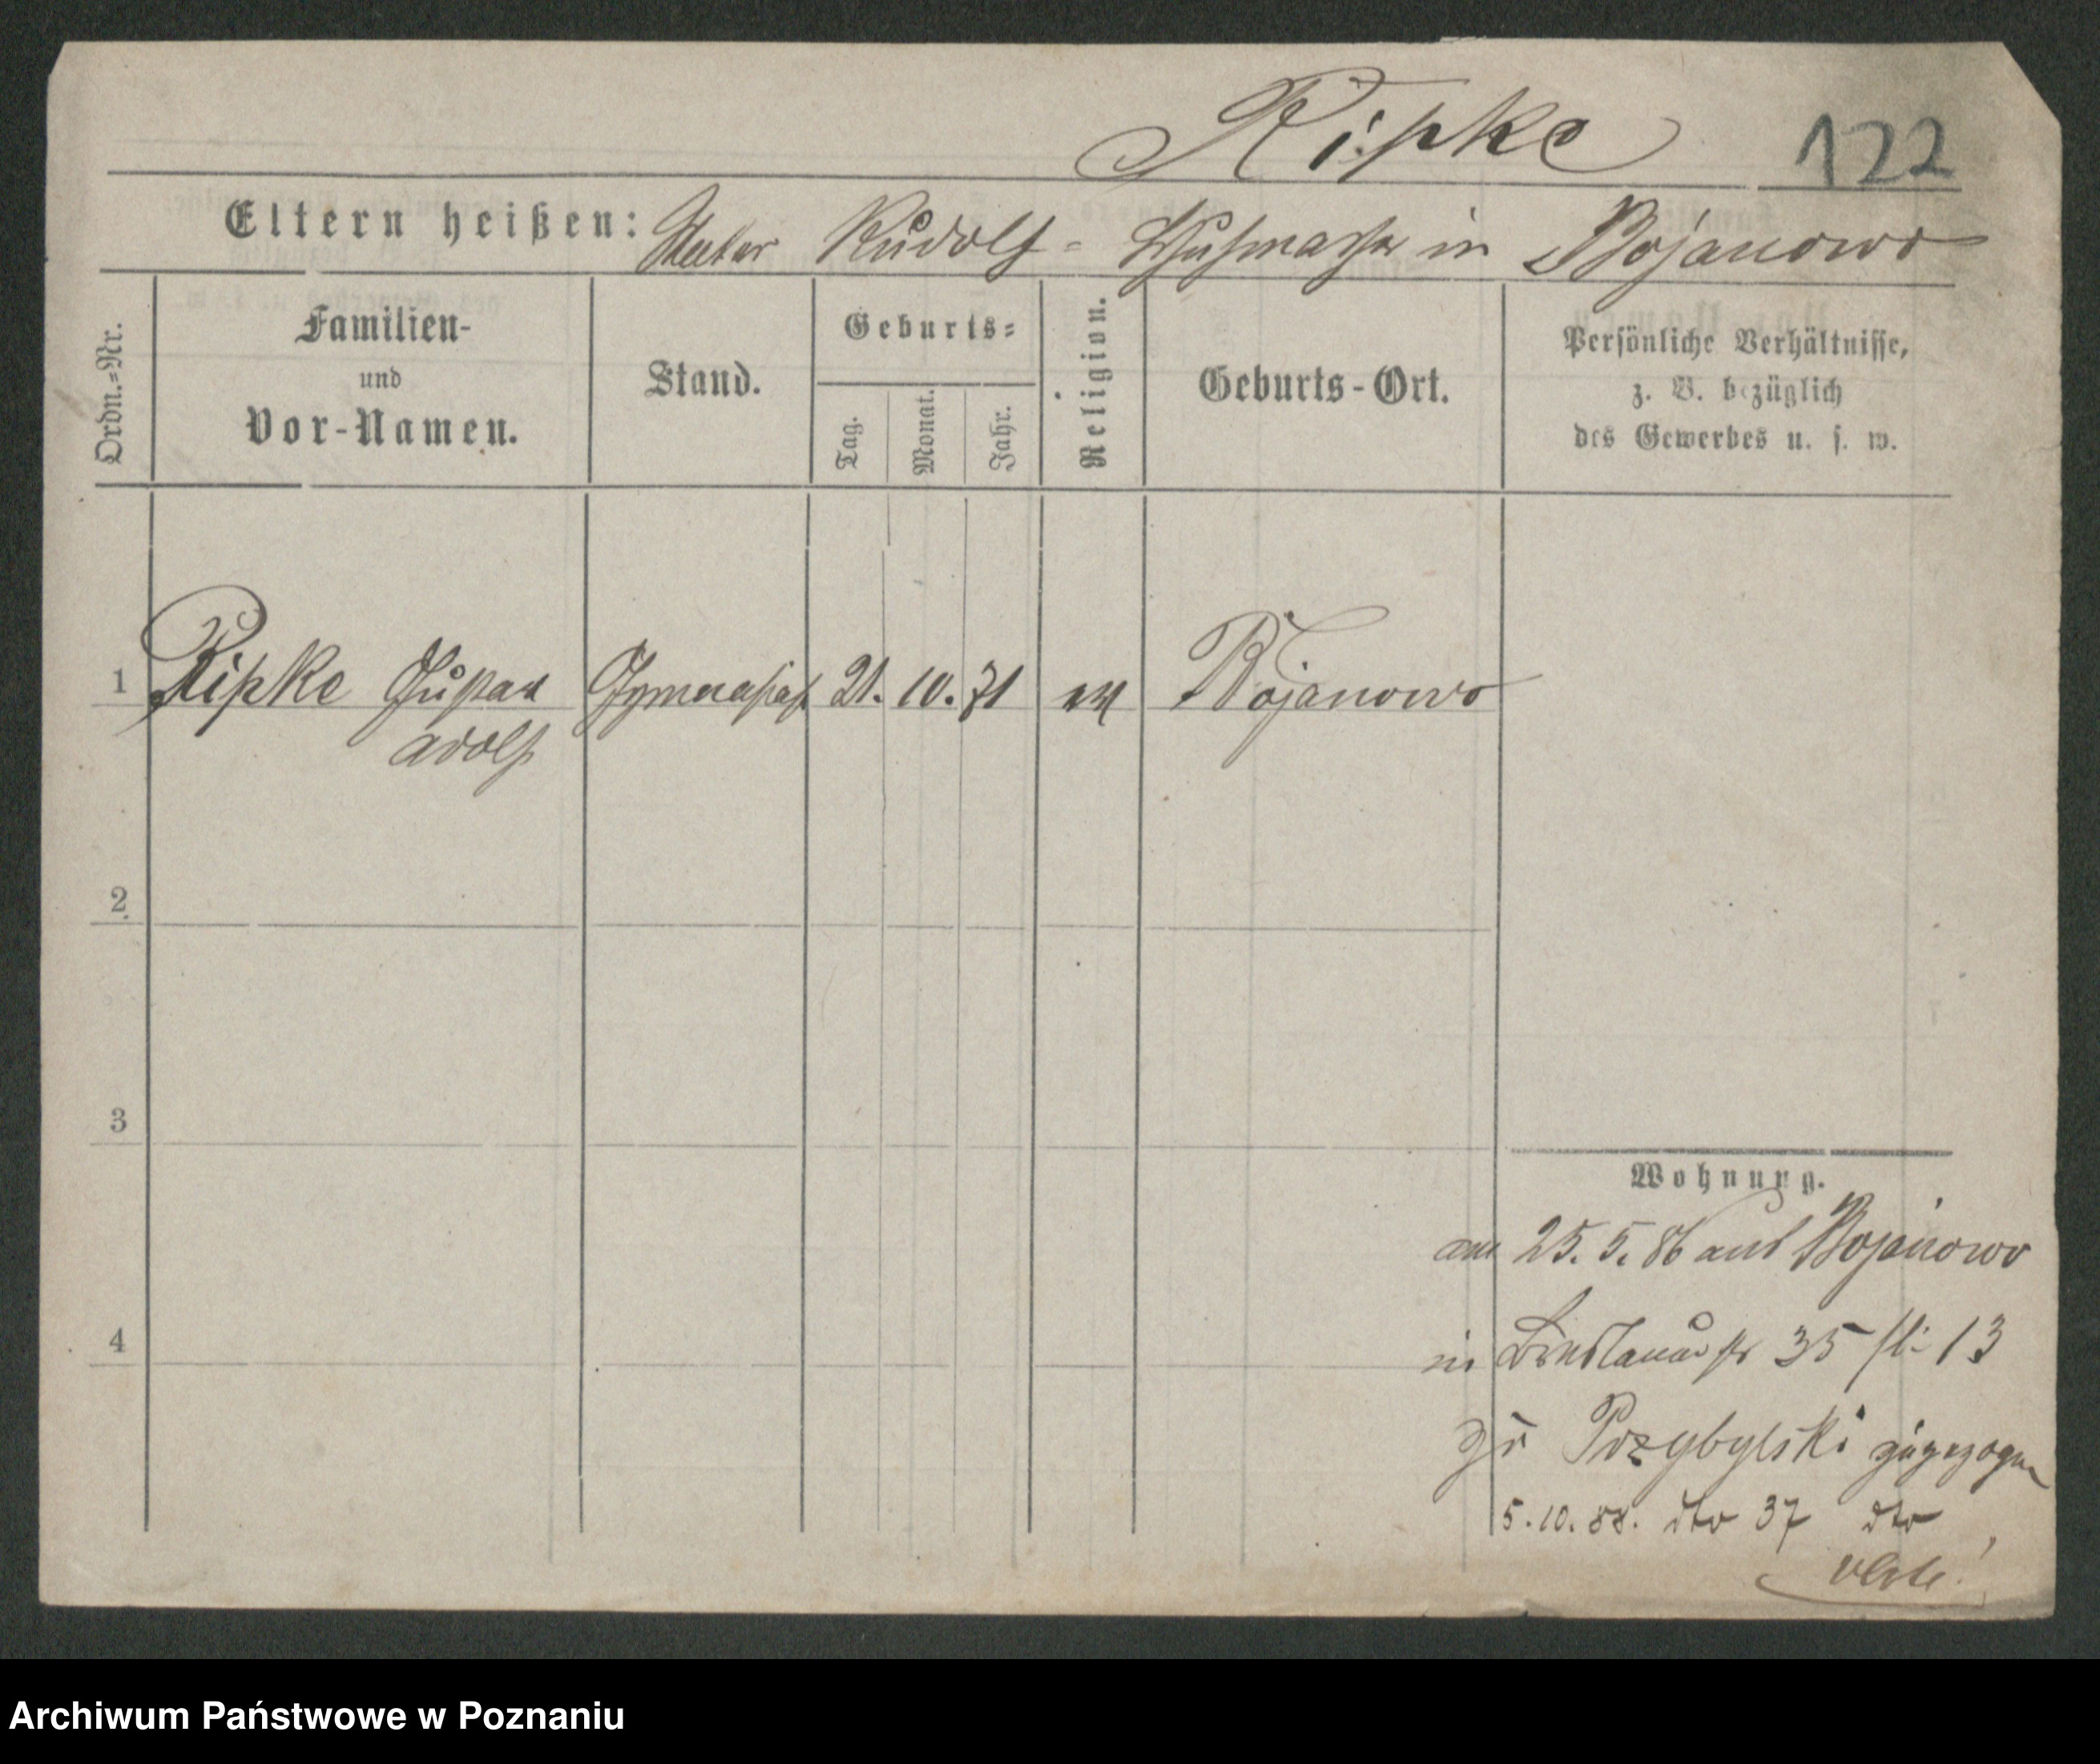 Ripke 122
Eltern heißen: Vater Rudolf - Schuhmacher in Bojanowo
Ordn.=Nr.
Familien-
und
Vor-Namen.
Stand.
Geburts=
Tag.
Monat.
Jahr.
Religion.
Geburts-Ort.
Persönliche Verhältnisse,
z. B. bezüglich
des Gewerbes u. s. w.
1 Ripke Gustav Gymnasiast 21. 10. 71 ev Bojanowo
Adolf
2
3
4
Wohnung.
am 25. 5. 86 aus Bojanowo
in Breslauerstr 35 13
zu Przybylski zugezogen
5. 10. 88. dto 37 dto